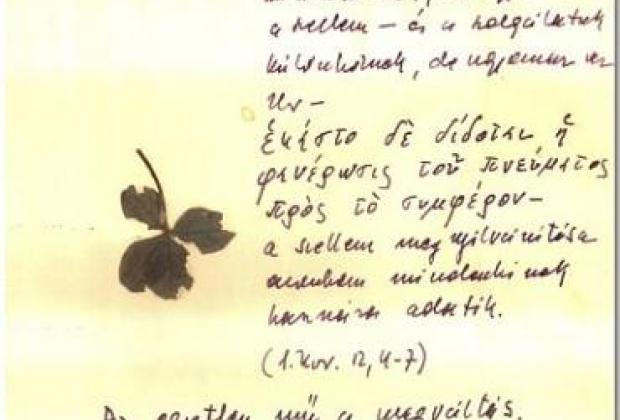 a szellem – és a szolgálatok
különbözőek, de ugyanaz az
Úr –
ἑκάστο δὲ δίδοται ἡ
φανέρωσις τοῦ πνεύματος
πρὸς τὸ συμφέρον –
a szellem megnyilvánulása
azonban mindenkinek
haszonra adatik.
(1. Kor. 12, 4-7)
Az egyetlen mű a megváltás.